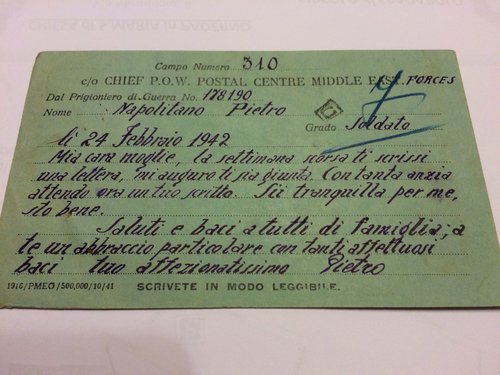 Campo Numero 310
c/o CHIEF P.O.W. POSTAL CENTRE MIDDLE EAST. FORCES
Dal Prigioniero di Guerra No. 178190
Nome Napolitano Pietro
Grado Soldato
lì 24 Febbraio 1942
Mia cara moglie, la settimana scorsa ti scrissi
una lettera, mi auguro ti sia giunta. Con tanta anzia
attendo ora un tuo scritto. Sii tranquilla per me,
sto bene.
Saluti e baci a tutti di famiglia; a
te un abbraccio particolare con tanti affettuosi
baci tuo affezionatissimo Pietro
1916/PMEO/500,000/10/41 SCRIVETE IN MODO LEGGIBILE.